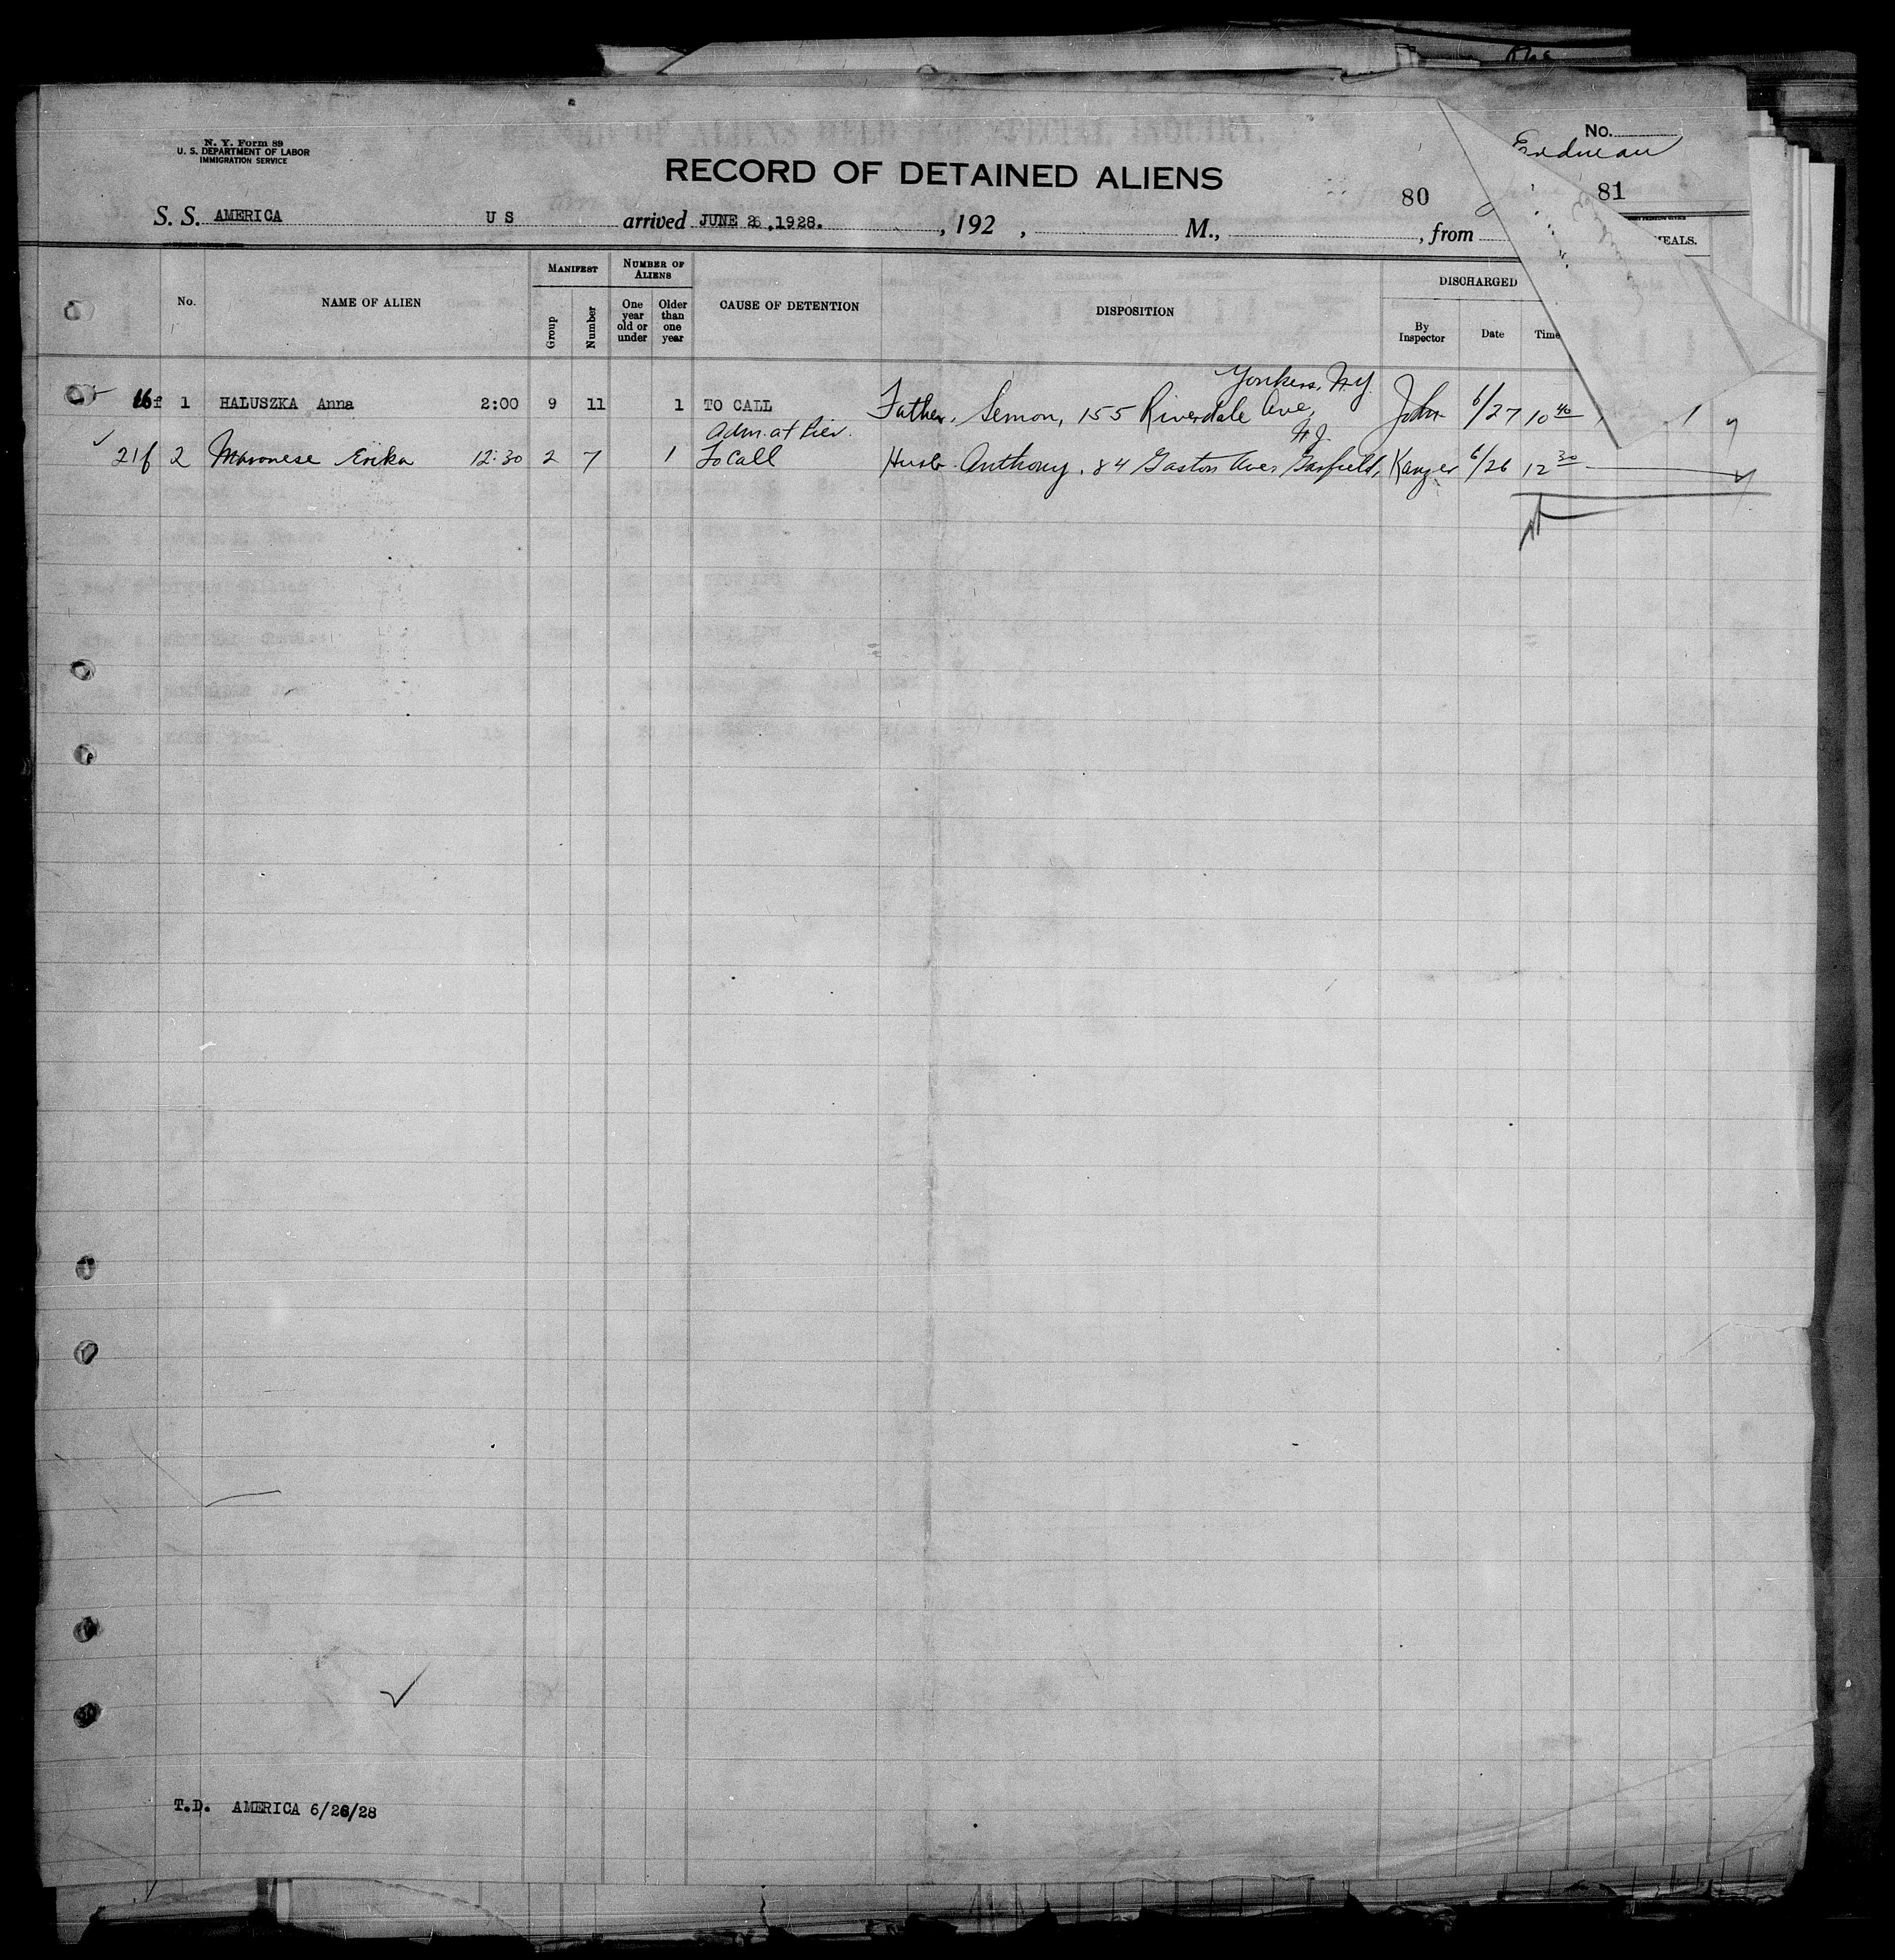 N. Y. Form 89
U. S. DEPARTMENT OF LABOR
IMMIGRATION SERVICE
RECORD OF ALIENS HELD FOR SPECIAL INQUIRY.
RECORD OF DETAINED ALIENS
No.
Erdman
80
81
S. S. AMERICA U S arrived JUNE 26, 1928. , 192 , M., , from
MEALS.
No.
NAME OF ALIEN
MANIFEST
Group
Number
NUMBER OF ALIENS
One year old or under
Older than one year
CAUSE OF DETENTION
DISPOSITION
DISCHARGED
By Inspector
Date
Time
Yonkers, N.Y.
16f 1 HALUSZKA Anna 2:00 9 11 1 TO CALL Father, Semon, 155 Riverdale Ave, John 6/27 10 40 1
Adm. at Pier. N.J.
21f 2 Maronese Erika 12:30 2 7 1 To Call Husb. Anthony, 84 Gaston Ave, Garfield, 6/26 12 30
T.D. AMERICA 6/26/28